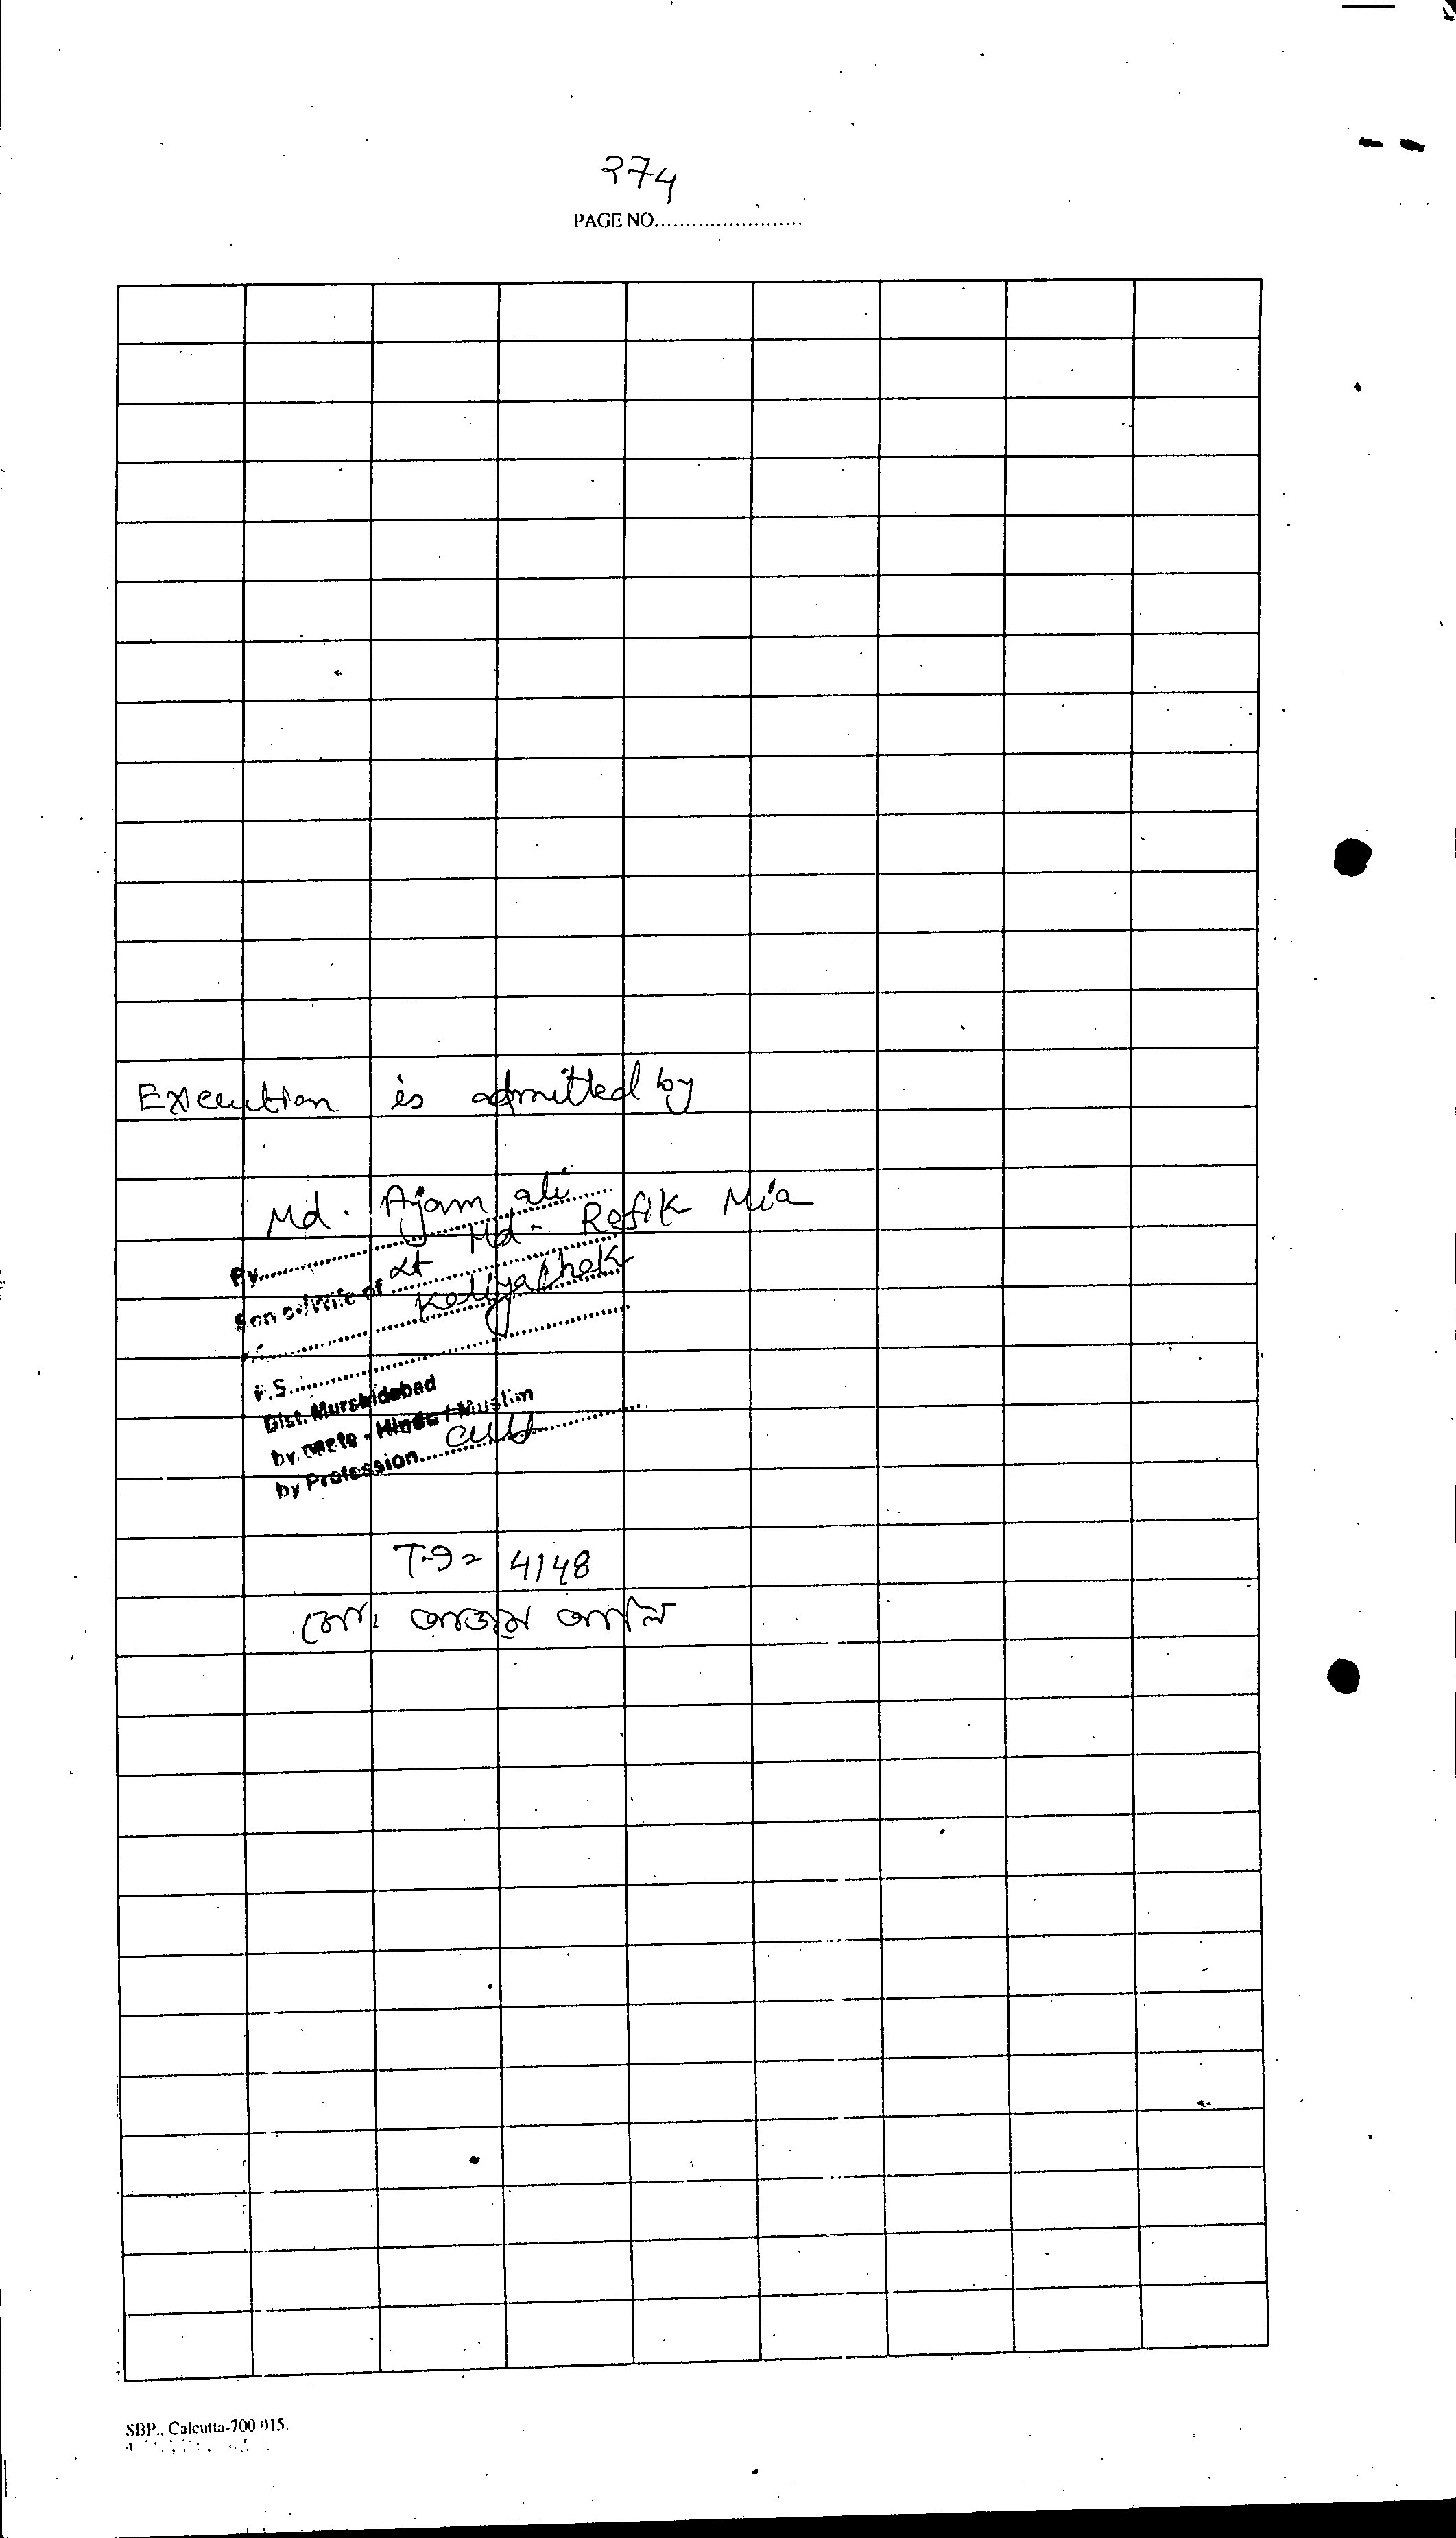 374
PAGE NO........................
Execution is admitted by
Md. Ajam ali
By
Son of/Wife of Lt Md. Refik Mia
Kaliyachok
P.S.
Dist. Murshidabad
by caste - Hindu / Muslim
by Profession cult
T.9= 4148
মোঃ আজম আলি
SBP., Calcutta-700 015.